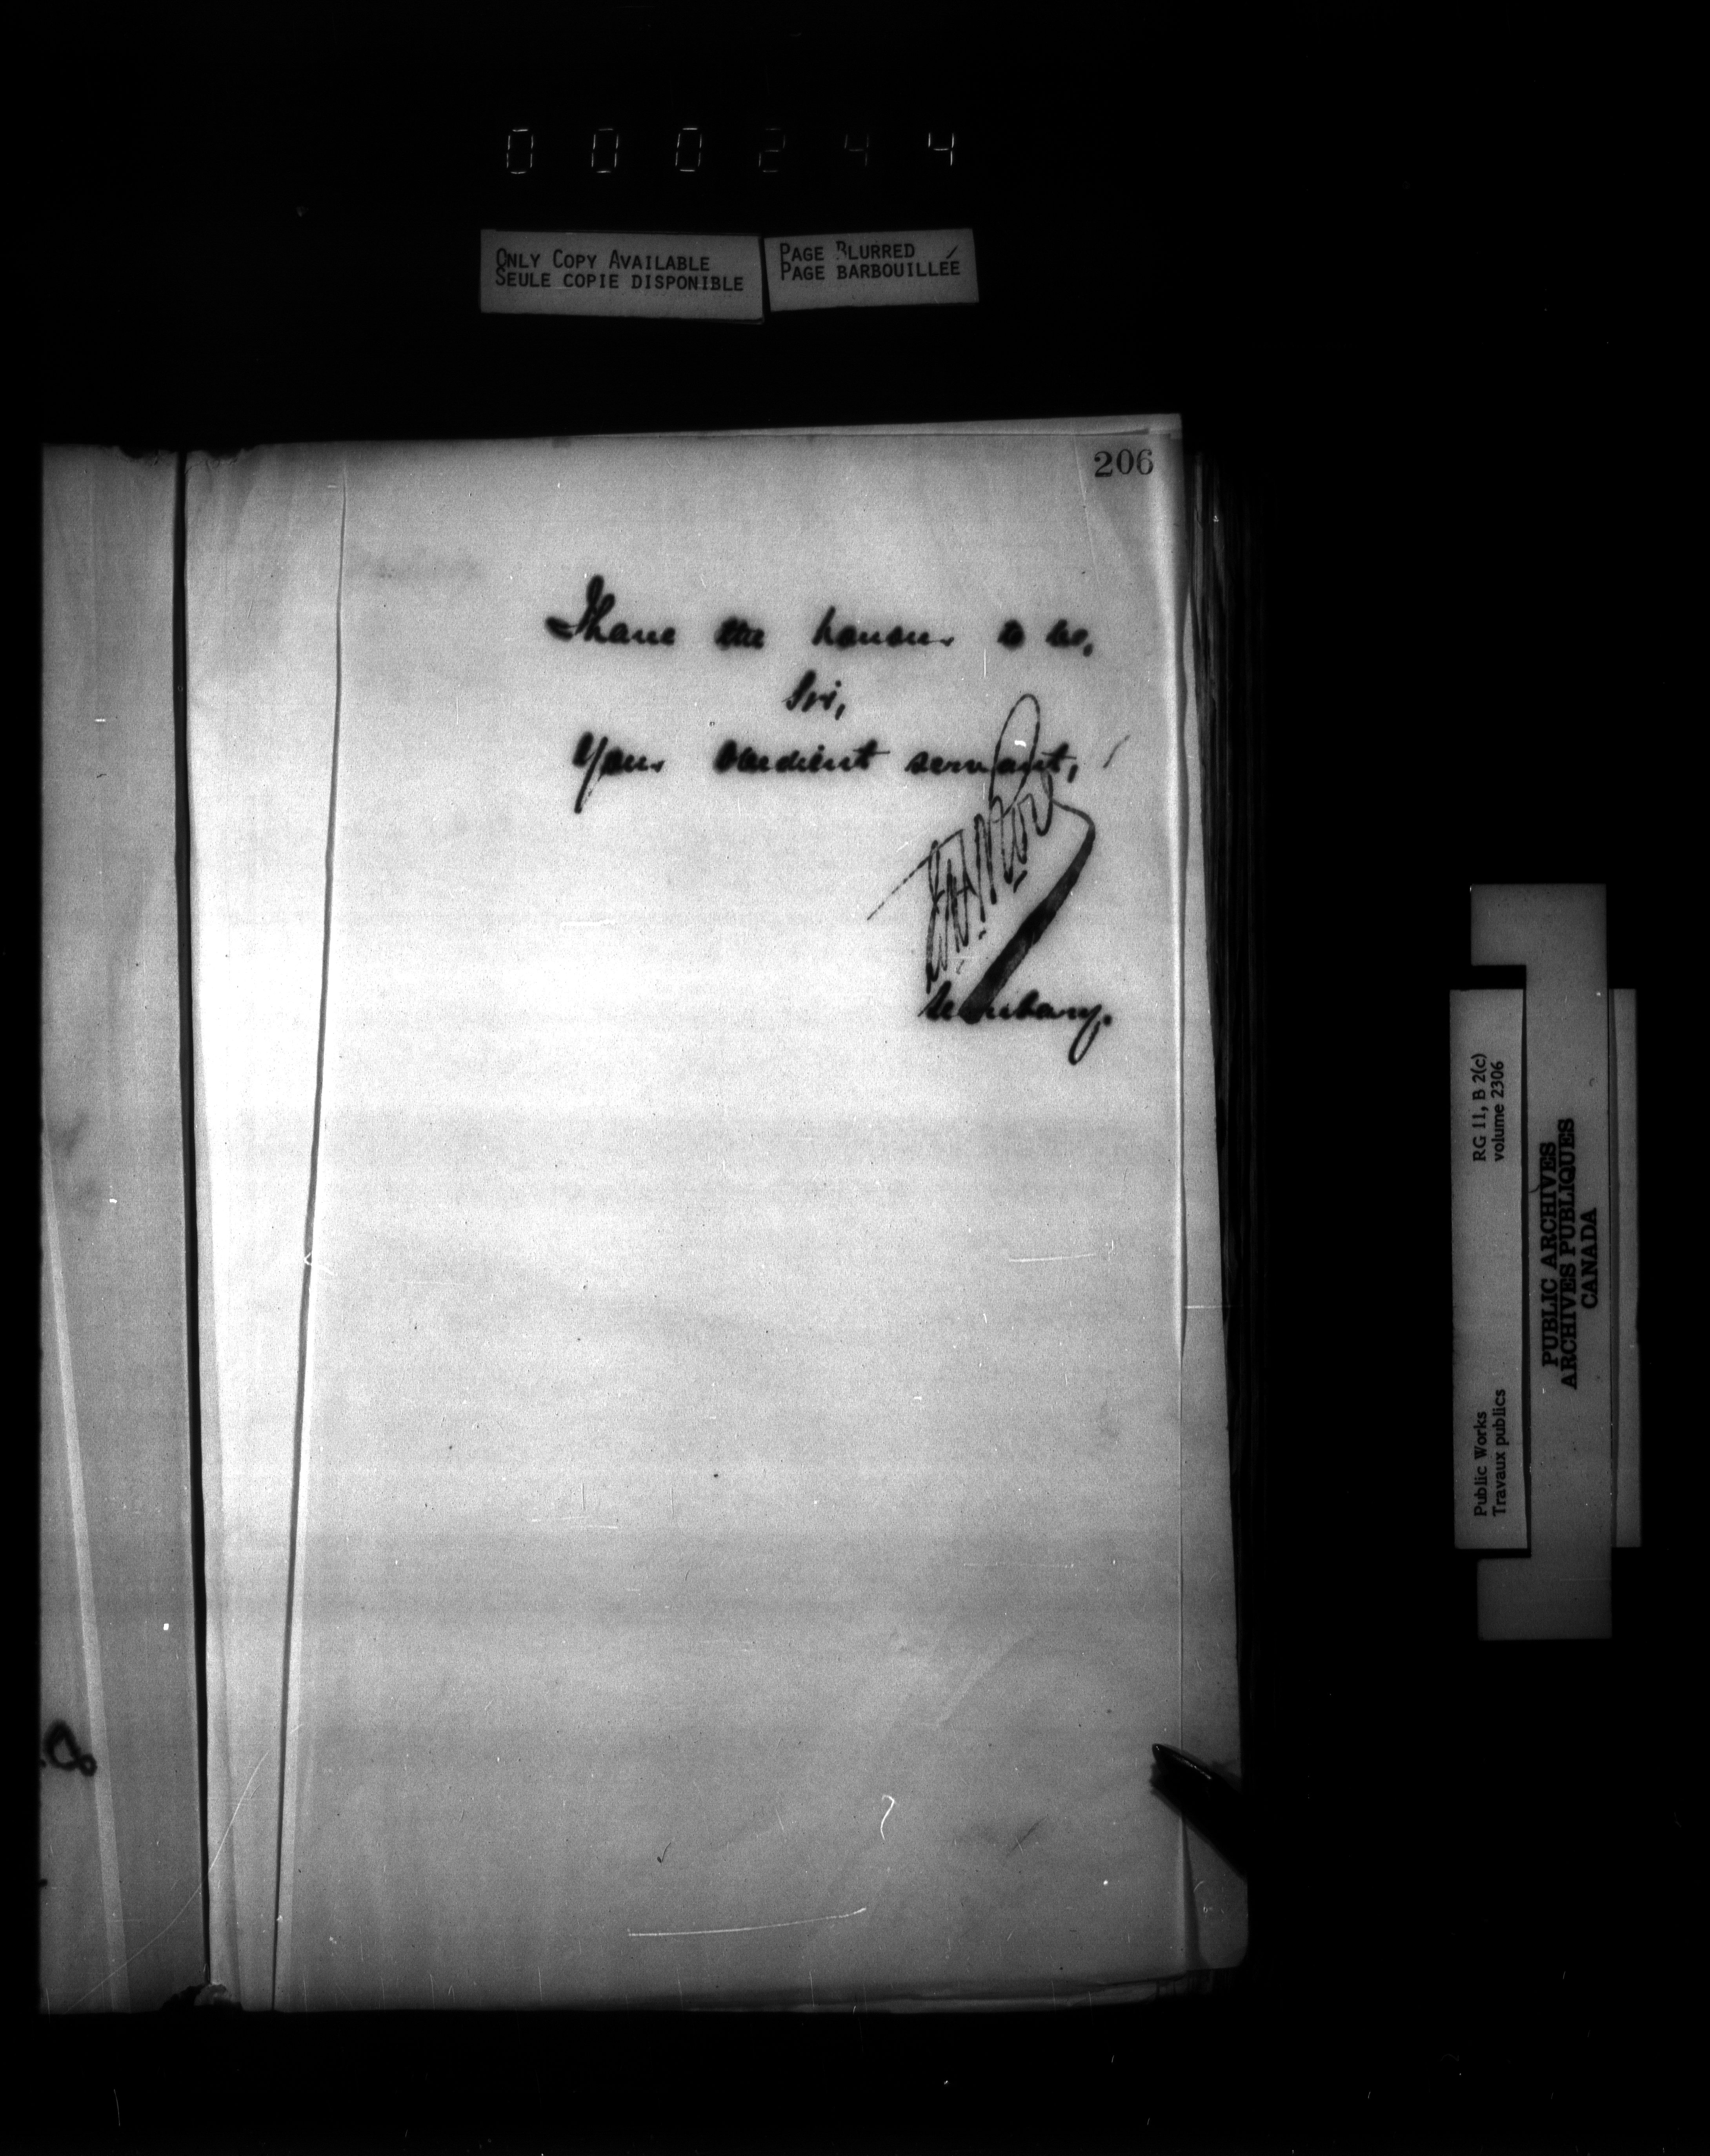 000244
ONLY COPY AVAILABLE
SEULE COPIE DISPONIBLE
PAGE BLURRED
PAGE BARBOUILLÉE
206
I have the honour to be,
Sir,
Your obedient servant,
Secretary.
RG 11, B 2(c)
volume 2306
Public Works
Travaux publics
PUBLIC ARCHIVES
ARCHIVES PUBLIQUES
CANADA